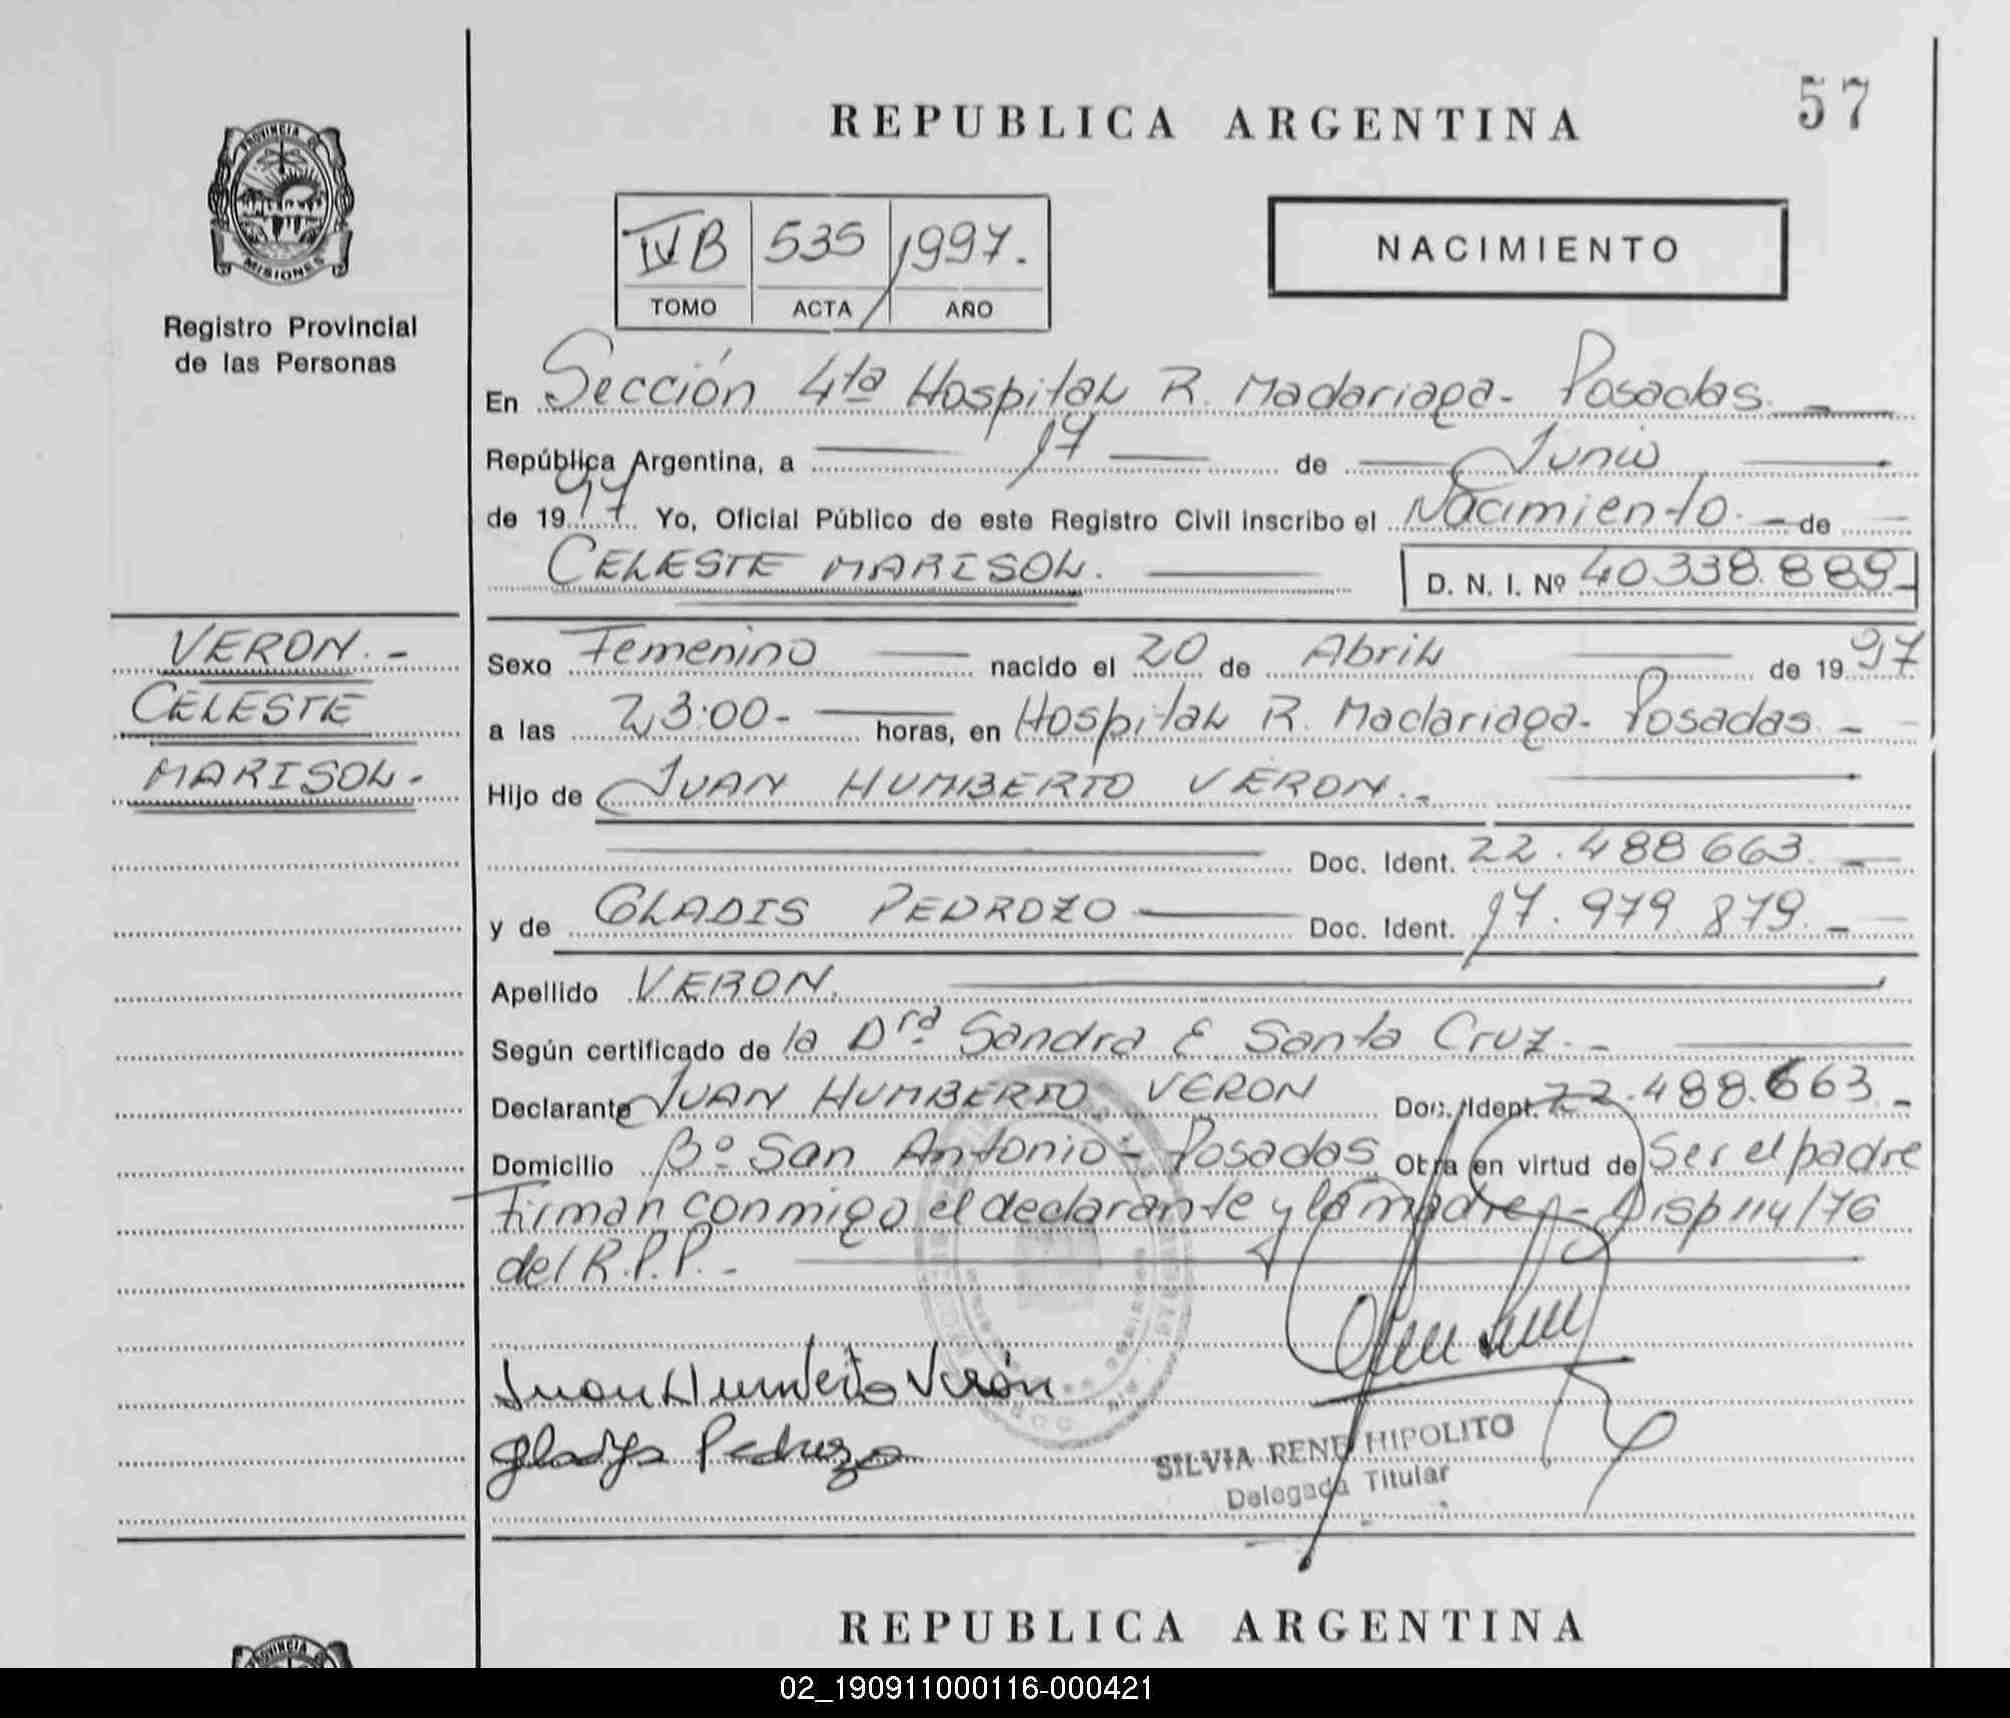 REPUBLICA ARGENTINA
57
PROVINCIA DE
MISIONES
Registro Provincial
de las Personas
IVB 535 1997.
TOMO ACTA AÑO
NACIMIENTO
En Sección 4ta Hospital R. Madariaga - Posadas. -
República Argentina, a 17 de Junio
de 1997 Yo, Oficial Público de este Registro Civil inscribo el Nacimiento. - de
CELESTE MARISOL.
D. N. I. Nº 40338.889 -
VERON. -
CELESTE
MARISOL.
Sexo Femenino nacido el 20 de Abril de 1997
a las 23:00 - horas, en Hospital R. Madariaga - Posadas. -
Hijo de JUAN HUMBERTO VERON. -
Doc. Ident. 22.488663. -
y de GLADIS PEDROZO Doc. Ident. 17.979.879. -
Apellido VERON.
Según certificado de la Dra. Sandra E. Santa Cruz. -
Declarante JUAN HUMBERTO VERON Doc. Ident. 22.488.663. -
Domicilio Bº San Antonio - Posadas Obra en virtud de Ser el padre
Firman conmigo el declarante y la madre, - Disp 114/76
del R.P.P. -
Juan Humberto Verón
Gladys Pedrozo
SILVIA RENE HIPOLITO
Delegada Titular
REPUBLICA ARGENTINA
PROVINCIA
02_190911000116-000421